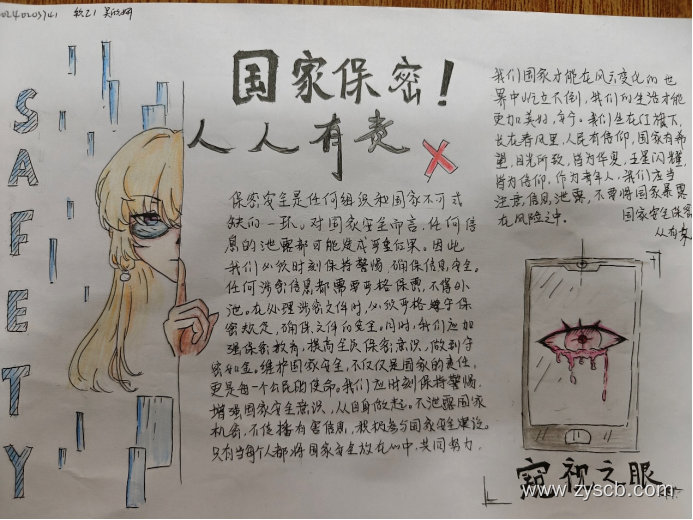 软21
SAFETY
国家保密!
人人有责
保密安全是任何组织和国家不可或
缺的一环。对国家安全而言,任何信
息的泄露都可能造成严重后果。因此
我们必须时刻保持警惕,确保信息安全。
任何涉密信息都需要严格保密,不得外
泄。在处理涉密文件时,必须严格遵守保
密规定,确保文件的安全。同时,我们应加
强保密教育,提高全员保密意识,做到守
密如金。维护国家安全,不仅仅是国家的责任,
更是每一个公民的使命。我们应时刻保持警惕,
增强国家安全意识,从自身做起。不泄露国家
机密,不传播有害信息,积极参与国家安全建设。
只有当每个人都将国家安全放在心中,共同努力,
我们国家才能在风云变化的世
界中屹立不倒,我们的生活才能
更加美好,安宁。我们生在红旗下,
长在春风里,人民有信仰,国家有希
望,目光所致,皆为华夏,五星闪耀,
皆为信仰,作为青年人,我们应当
注意信息泄露,不要将国家暴露
在风险之中。
国家安全保密
从有你
窥视之眼
www.zyscb.com